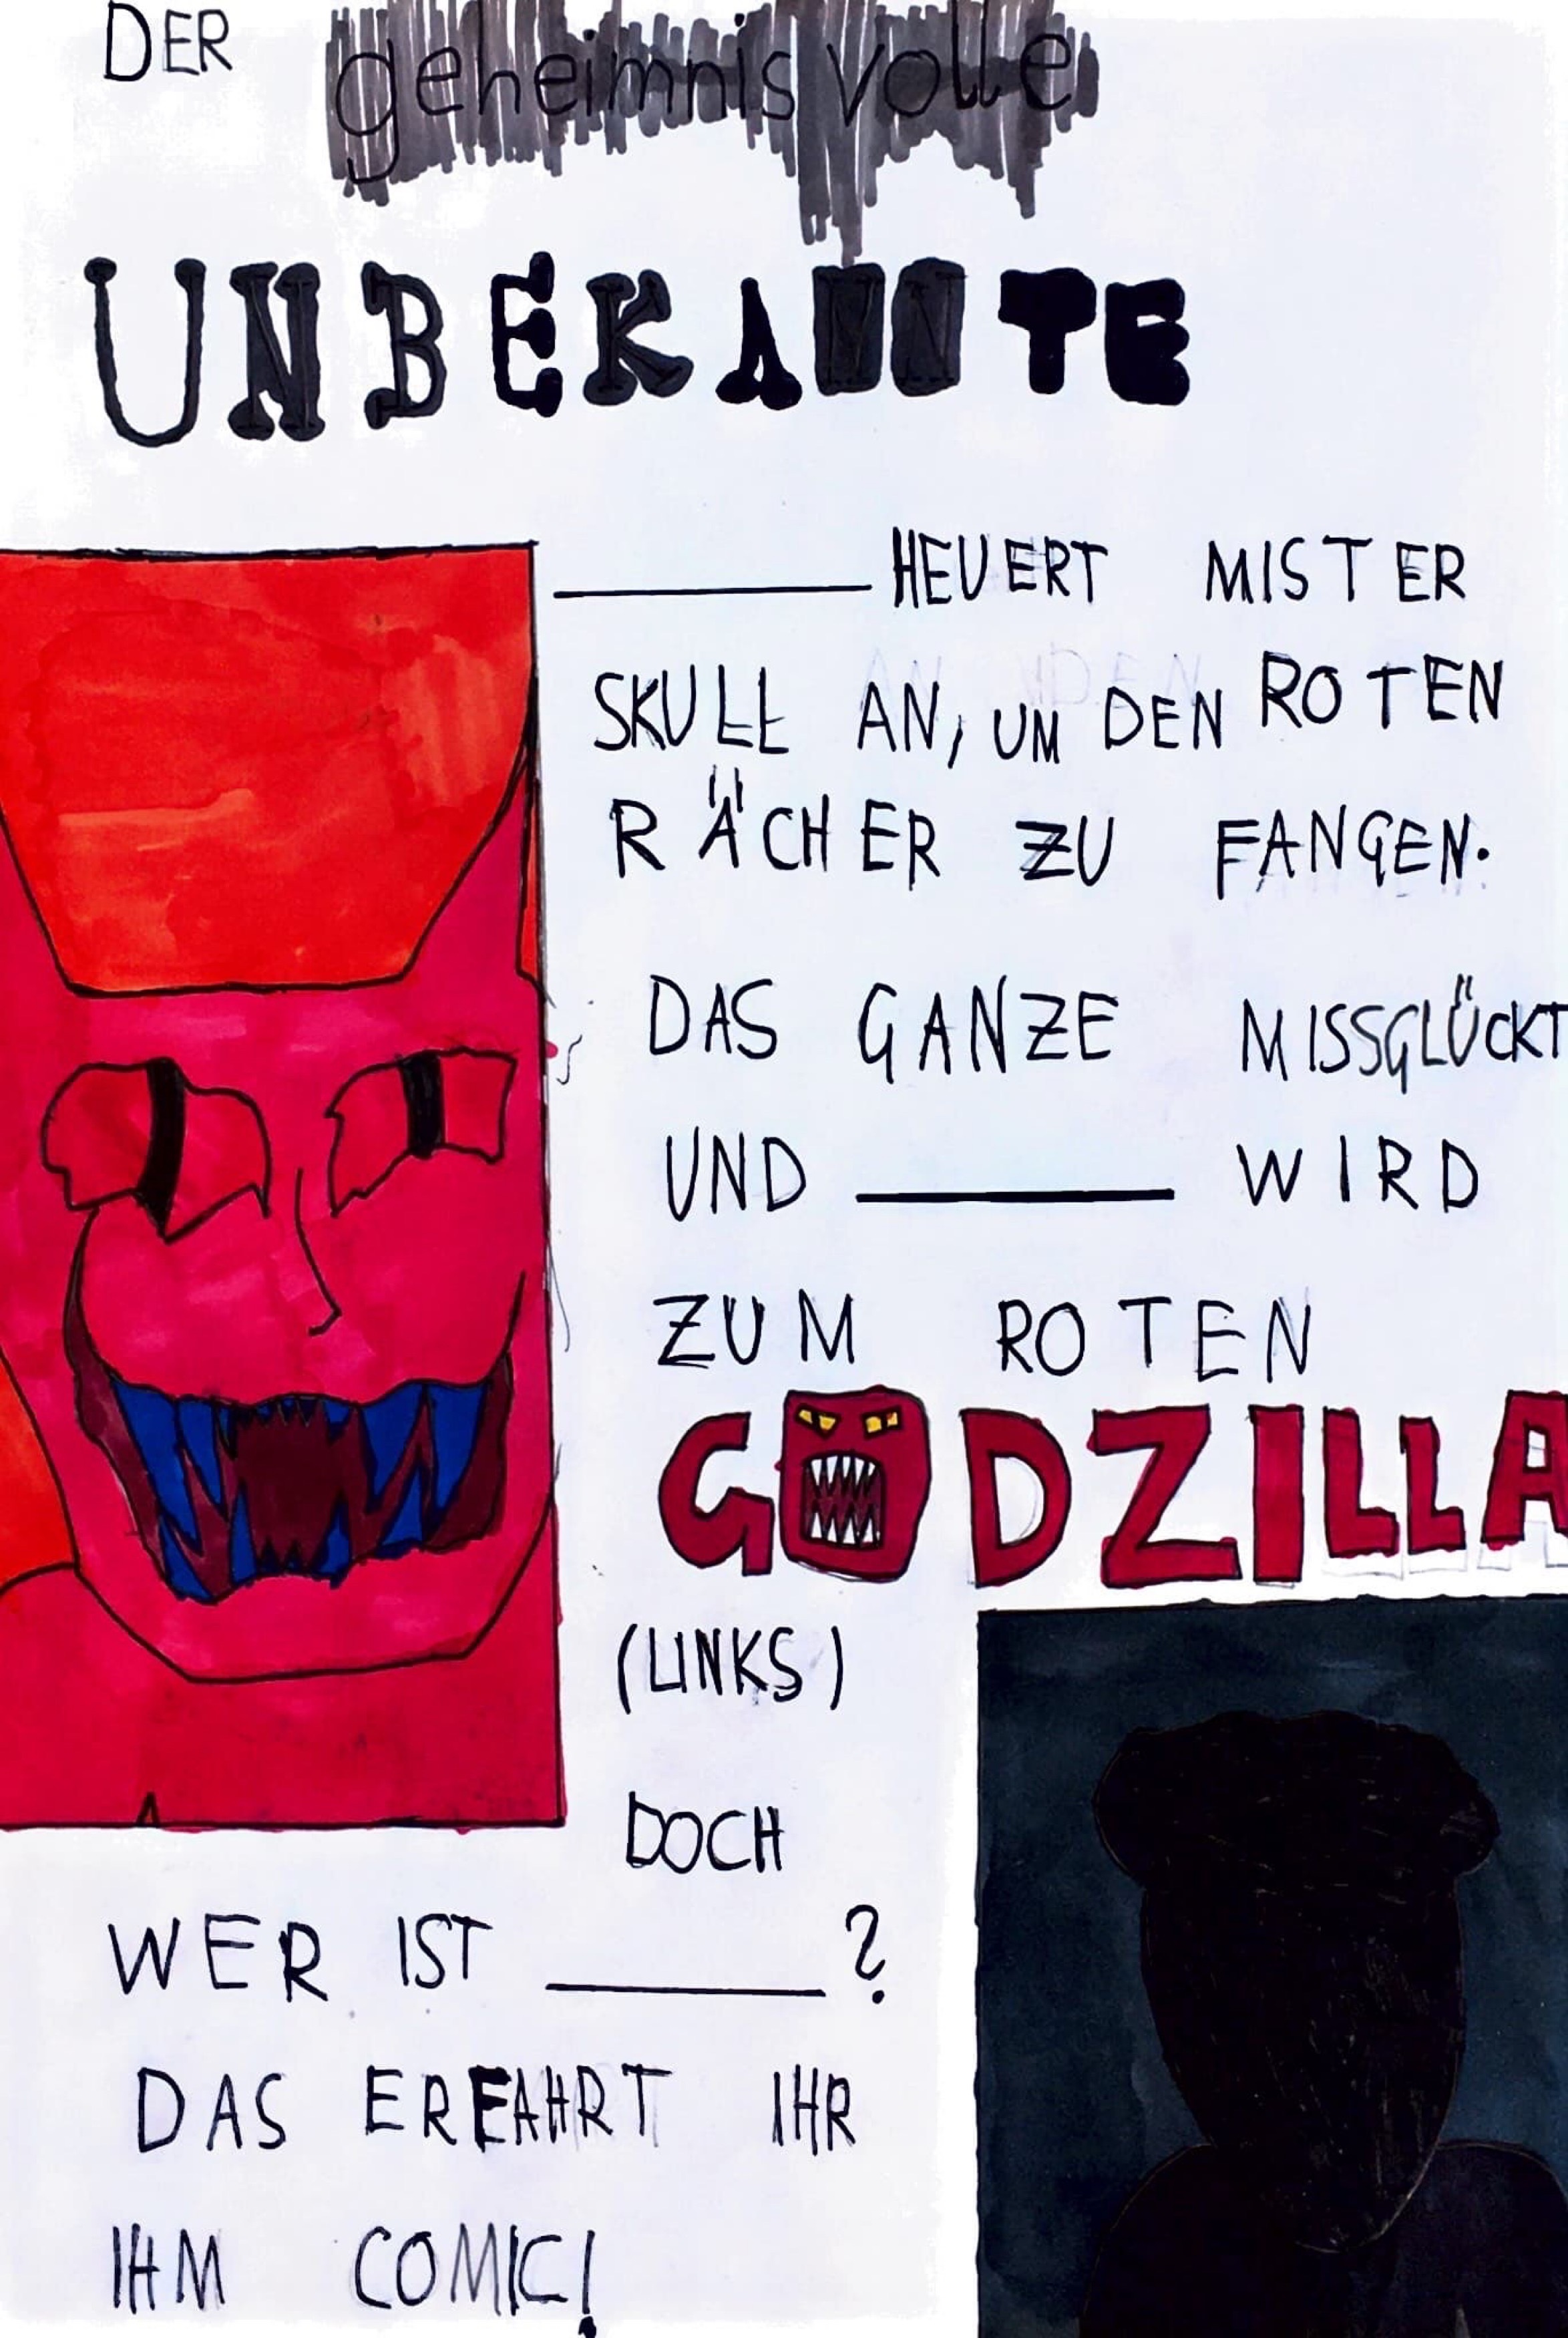 DER geheimnisvolle
UNBEKANNTE
______ HEUERT MISTER
SKULL AN, UM DEN ROTEN
RÄCHER ZU FANGEN.
DAS GANZE MISSGLÜCKT
UND ______ WIRD
ZUM ROTEN
GODZILLA
(LINKS)
DOCH
WER IST ______?
DAS ERFAHRT IHR
IHM COMIC!